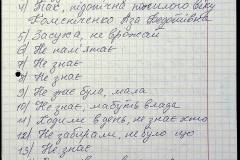 4) Так, підопічна похилого віку
Комсніченко Аза Федотівна
5) Засуха, не врожай
6) Не пам'ятає
7) Не знає
8) Не знає
9) Не жає була, мала
10) Не знає, мабуть влада
11) Ходили в день, не знає хто
12) Не забирали, не було що
13) Не знає